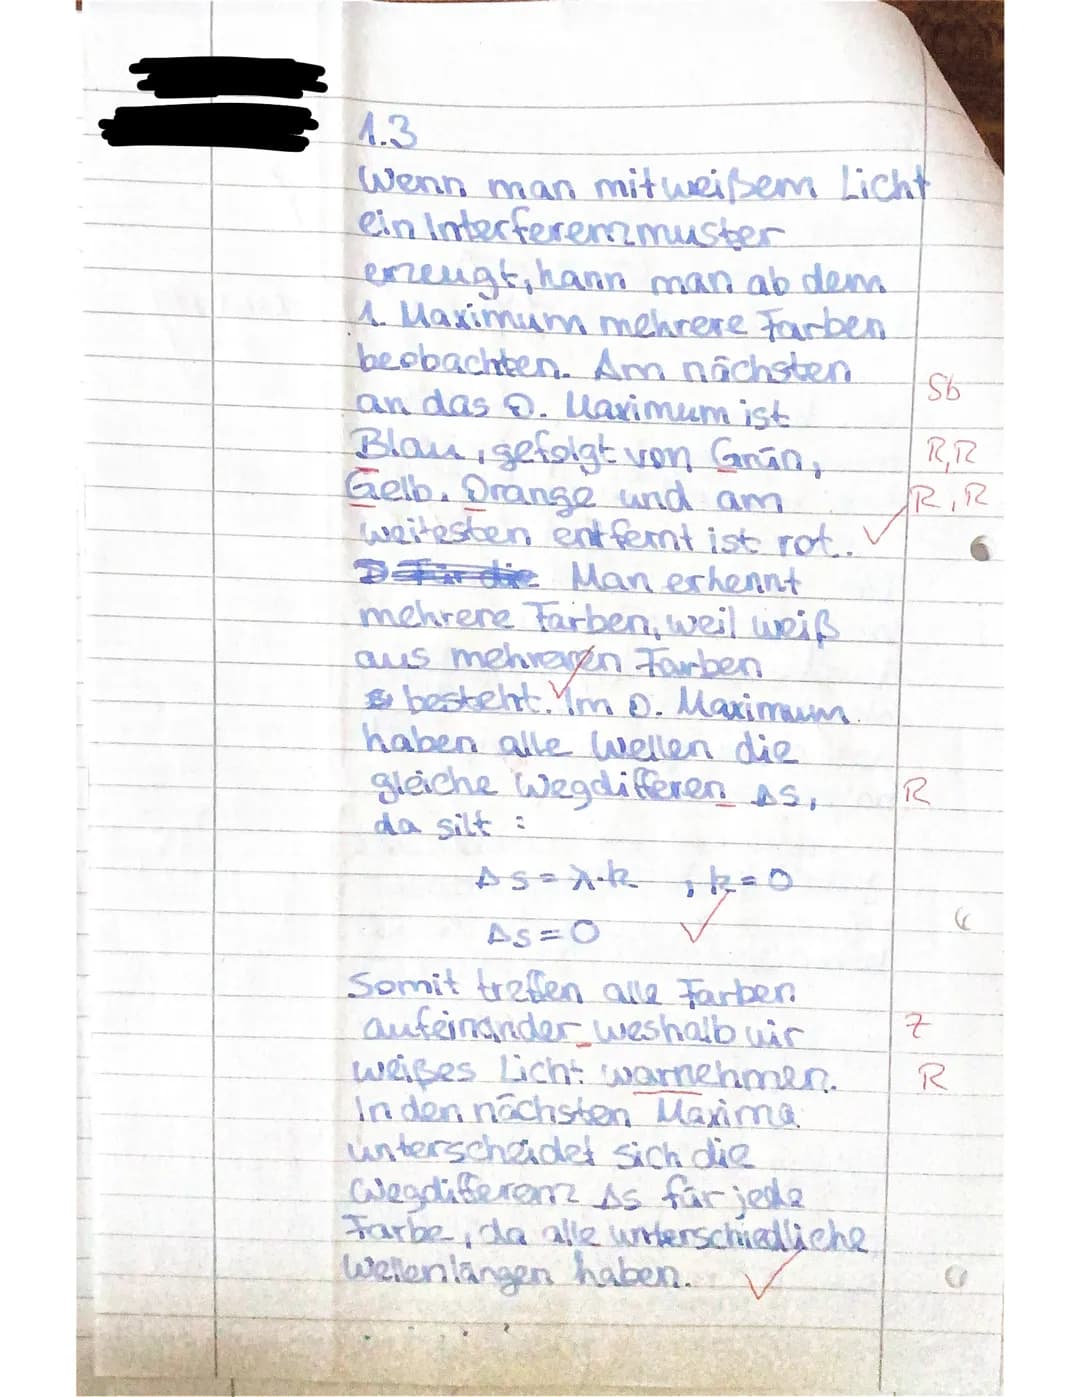 1.3
Wenn man mit weißem Licht
ein Interferenzmuster
erzeugt, kann man ab dem
1. Maximum mehrere Farben
beobachten. Am nächsten
Sb
an das 0. Maximum ist
Blau, gefolgt von Grün,
R, R
Gelb, Orange und am
R, R
weitesten entfernt ist rot.
Man erkennt
mehrere Farben, weil weiß
aus mehreren Farben
besteht. Im 0. Maximum
haben alle Wellen die
gleiche Wegdifferen Δs,
R
da gilt:
Δs = λ·k , k = 0
Δs = 0
Somit treffen alle Farben
aufeinander weshalb wir
Z
weißes Licht warnehmen.
R
In den nächsten Maxima
unterscheidet sich die
Wegdifferenz Δs für jede
Farbe, da alle unterschiedliche
Wellenlängen haben.